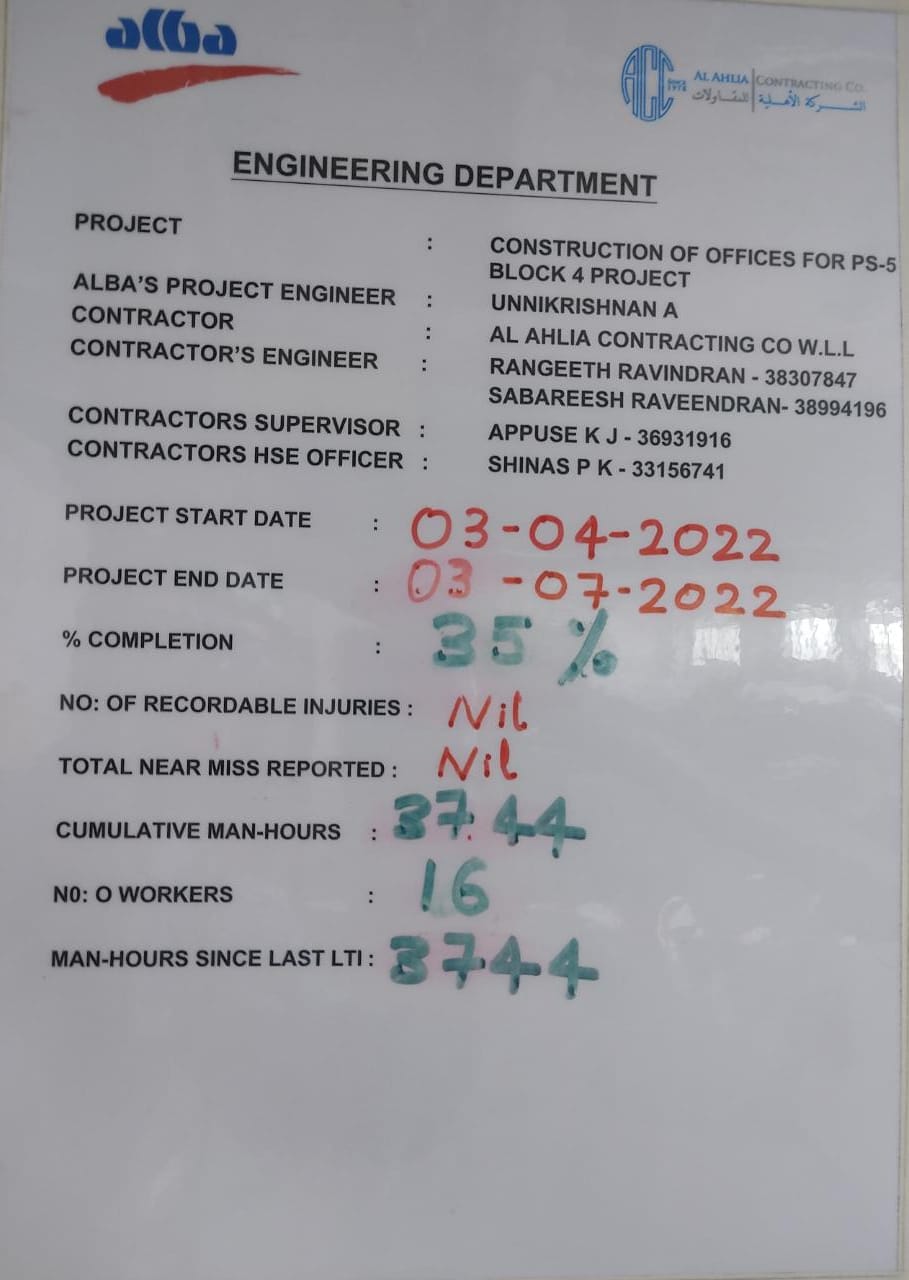 alba
ACC SINCE 1974 AL AHLIA CONTRACTING CO.
الشركة الأهلية للمقاولات
ENGINEERING DEPARTMENT
PROJECT : CONSTRUCTION OF OFFICES FOR PS-5
BLOCK 4 PROJECT
ALBA'S PROJECT ENGINEER : UNNIKRISHNAN A
CONTRACTOR : AL AHLIA CONTRACTING CO W.L.L
CONTRACTOR'S ENGINEER : RANGEETH RAVINDRAN - 38307847
SABAREESH RAVEENDRAN- 38994196
CONTRACTORS SUPERVISOR : APPUSE K J - 36931916
CONTRACTORS HSE OFFICER : SHINAS P K - 33156741
PROJECT START DATE : 03-04-2022
PROJECT END DATE : 03-07-2022
% COMPLETION : 35 %
NO: OF RECORDABLE INJURIES : Nil
TOTAL NEAR MISS REPORTED : Nil
CUMULATIVE MAN-HOURS : 3744
N0: O WORKERS : 16
MAN-HOURS SINCE LAST LTI : 3744